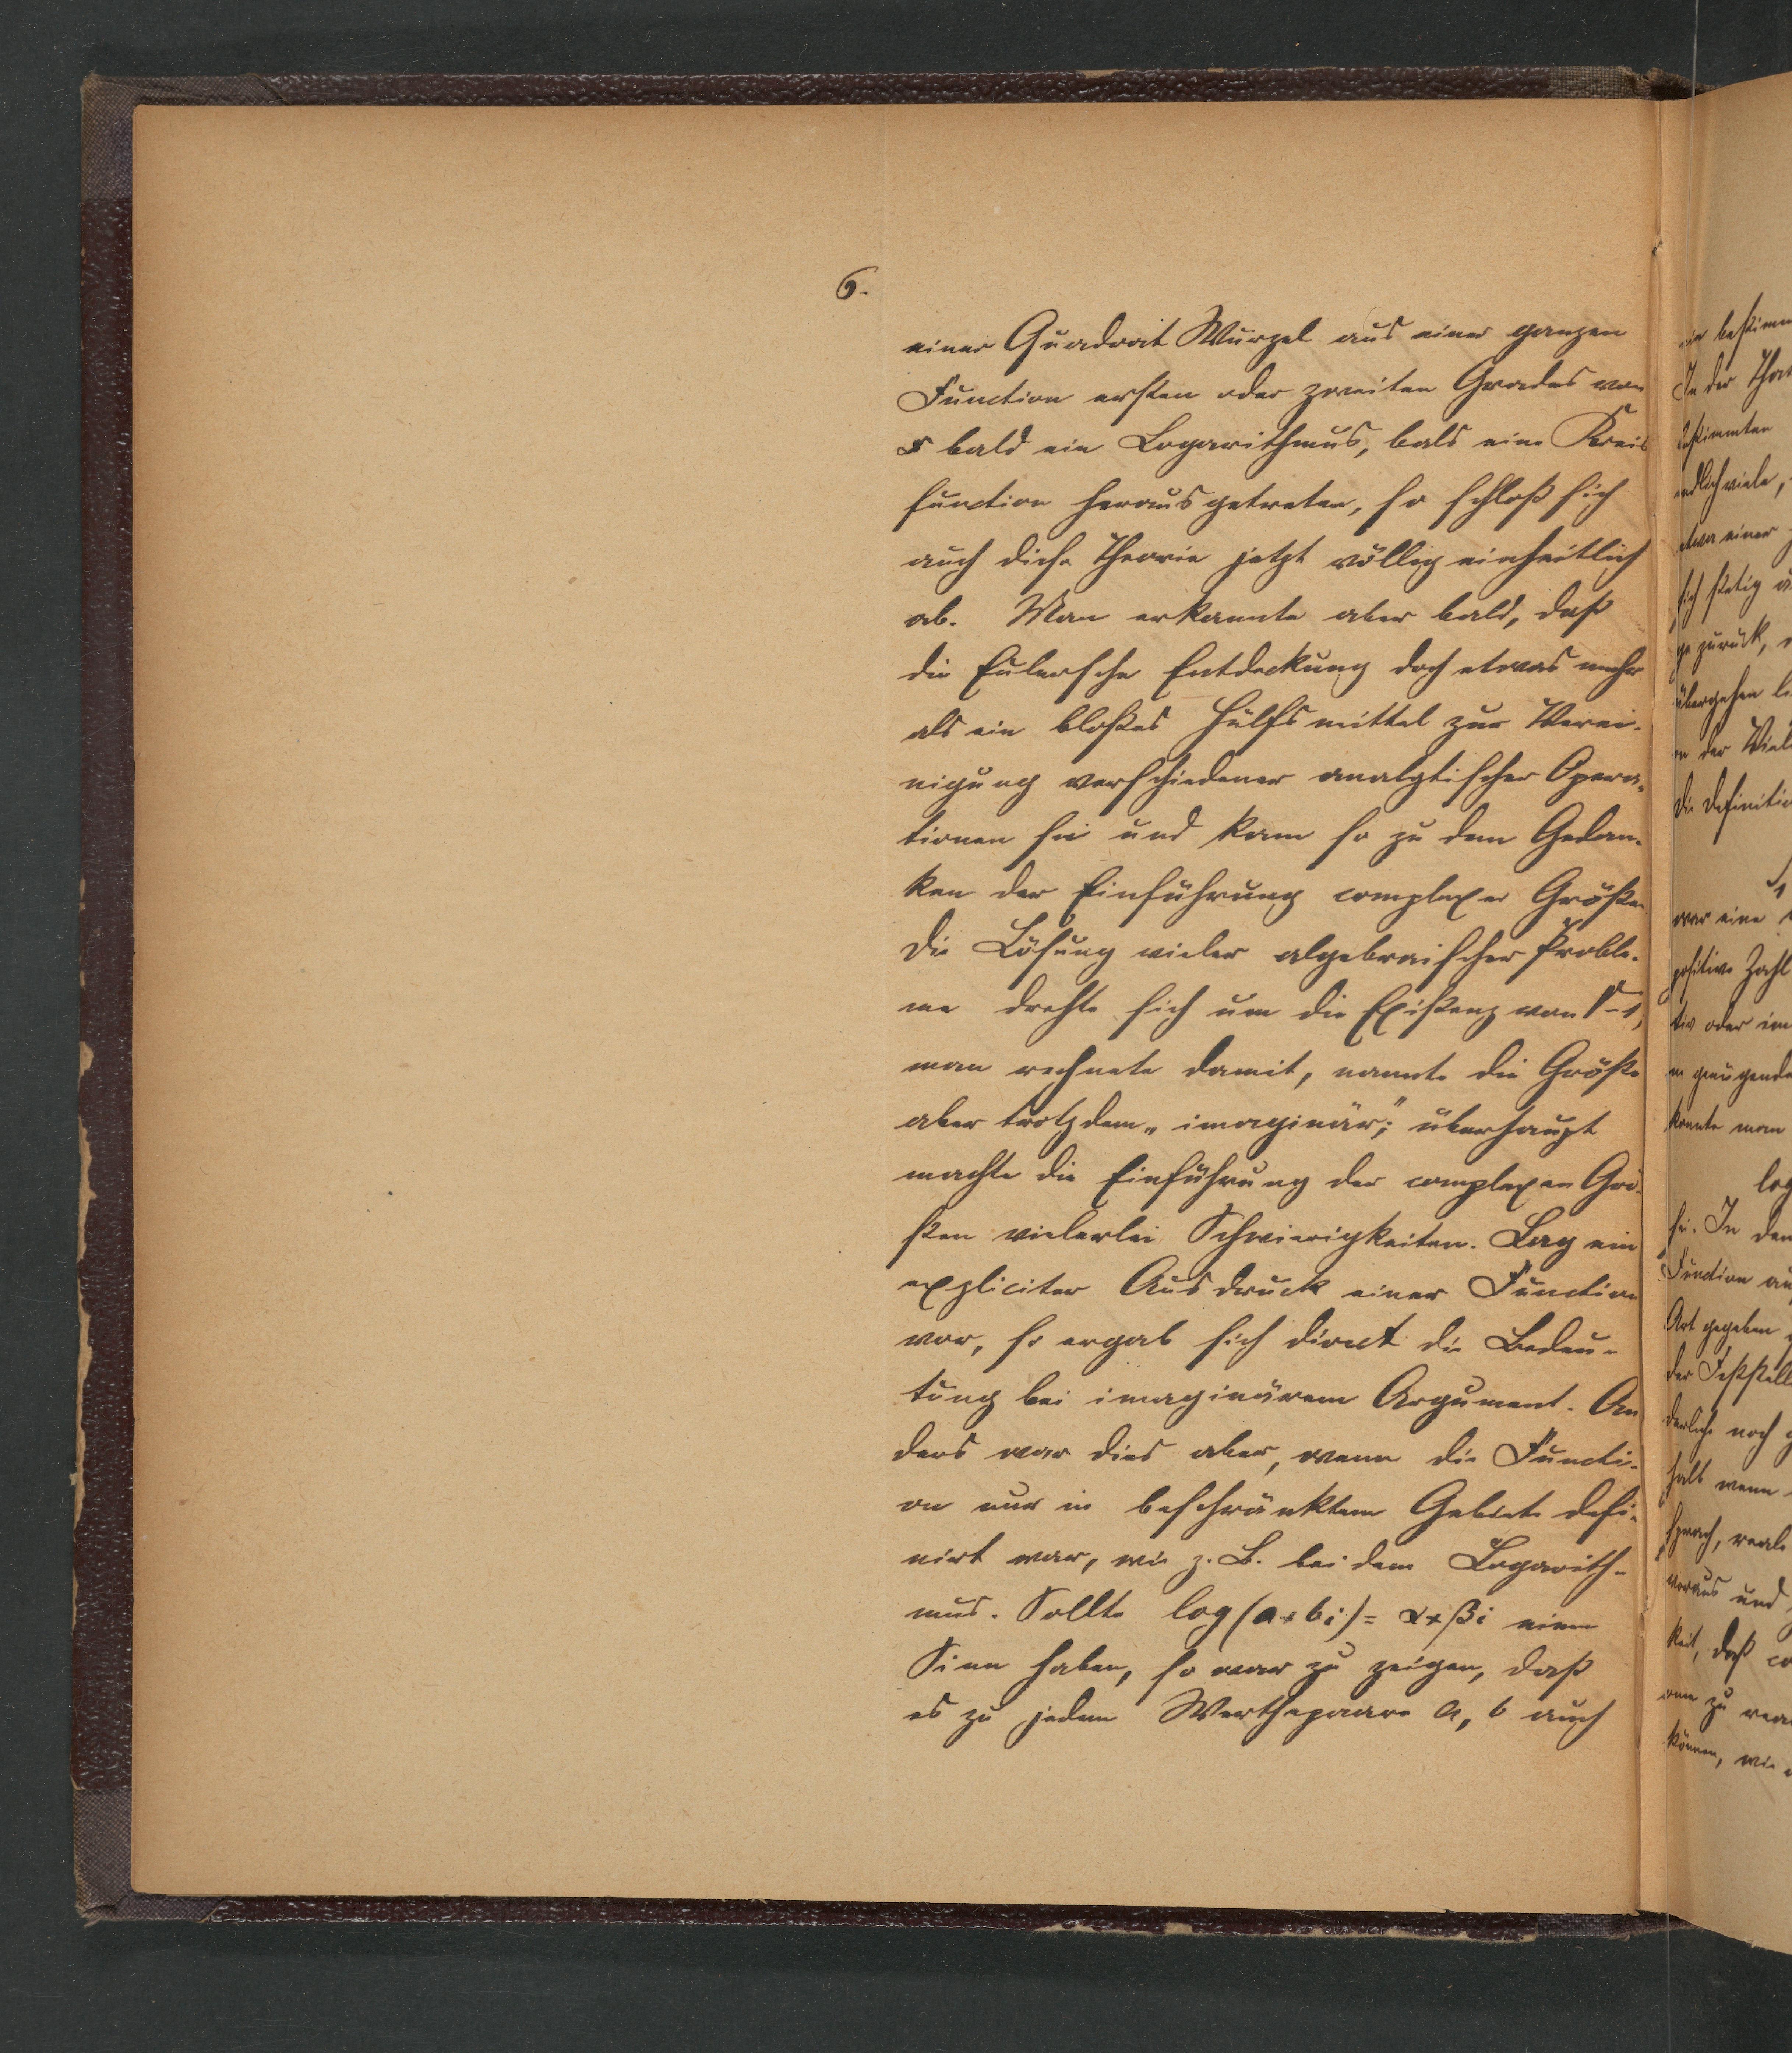 6.
einer Quadrat Wurzel aus einer ganzen
Function ersten oder zweiten Grades von
x bald ein Logarithmus, bald eine Kreis
function herausgetreten, so schloß sich
auch diese Theorie jetzt völlig einheitlich
ab. Man erkannte aber bald, daß
die Eulersche Entdeckung doch etwas mehr
als ein bloßes Hülfsmittel zur Verei-
nigung verschiedener analytischer Opera-
tionen sei und kam so zu dem Gedan-
ken der Einführung complexer Größen
Die Lösung vieler algebraischer Proble-
me drehte sich um die Existenz von √-1,
man rechnete damit, nannte die Größe
aber trotzdem „imaginär"; überhaupt
machte die Einführung der complexen Grö-
ßen vielerlei Schwierigkeiten. Lag ein
expliciter Ausdruck einer Function
vor, so ergab sich direct die Bedeu-
tung bei imaginärem Argument. An
ders war dies aber, wenn die Functi-
on nur in beschränktem Gebiete defi-
nirt war, wie z. B. bei dem Logarith-
mus. Sollte log(a+bi)= α+βi einen
Sinn haben, so war zu zeigen, daß
es zu jedem Werthepaare a, b auch
In der That
bestimmten
endlich viele,
etwa einer
sich stetig
zurück,
übergehen
der
Die Definitio
war eine
positive Zahl
oder im
genügende
konnte man
log
sei. In dem
Function
Art gegeben
der Feststell
noch
halb wenn
sprach,
voraus und
keit, daß co
zu
können, wie